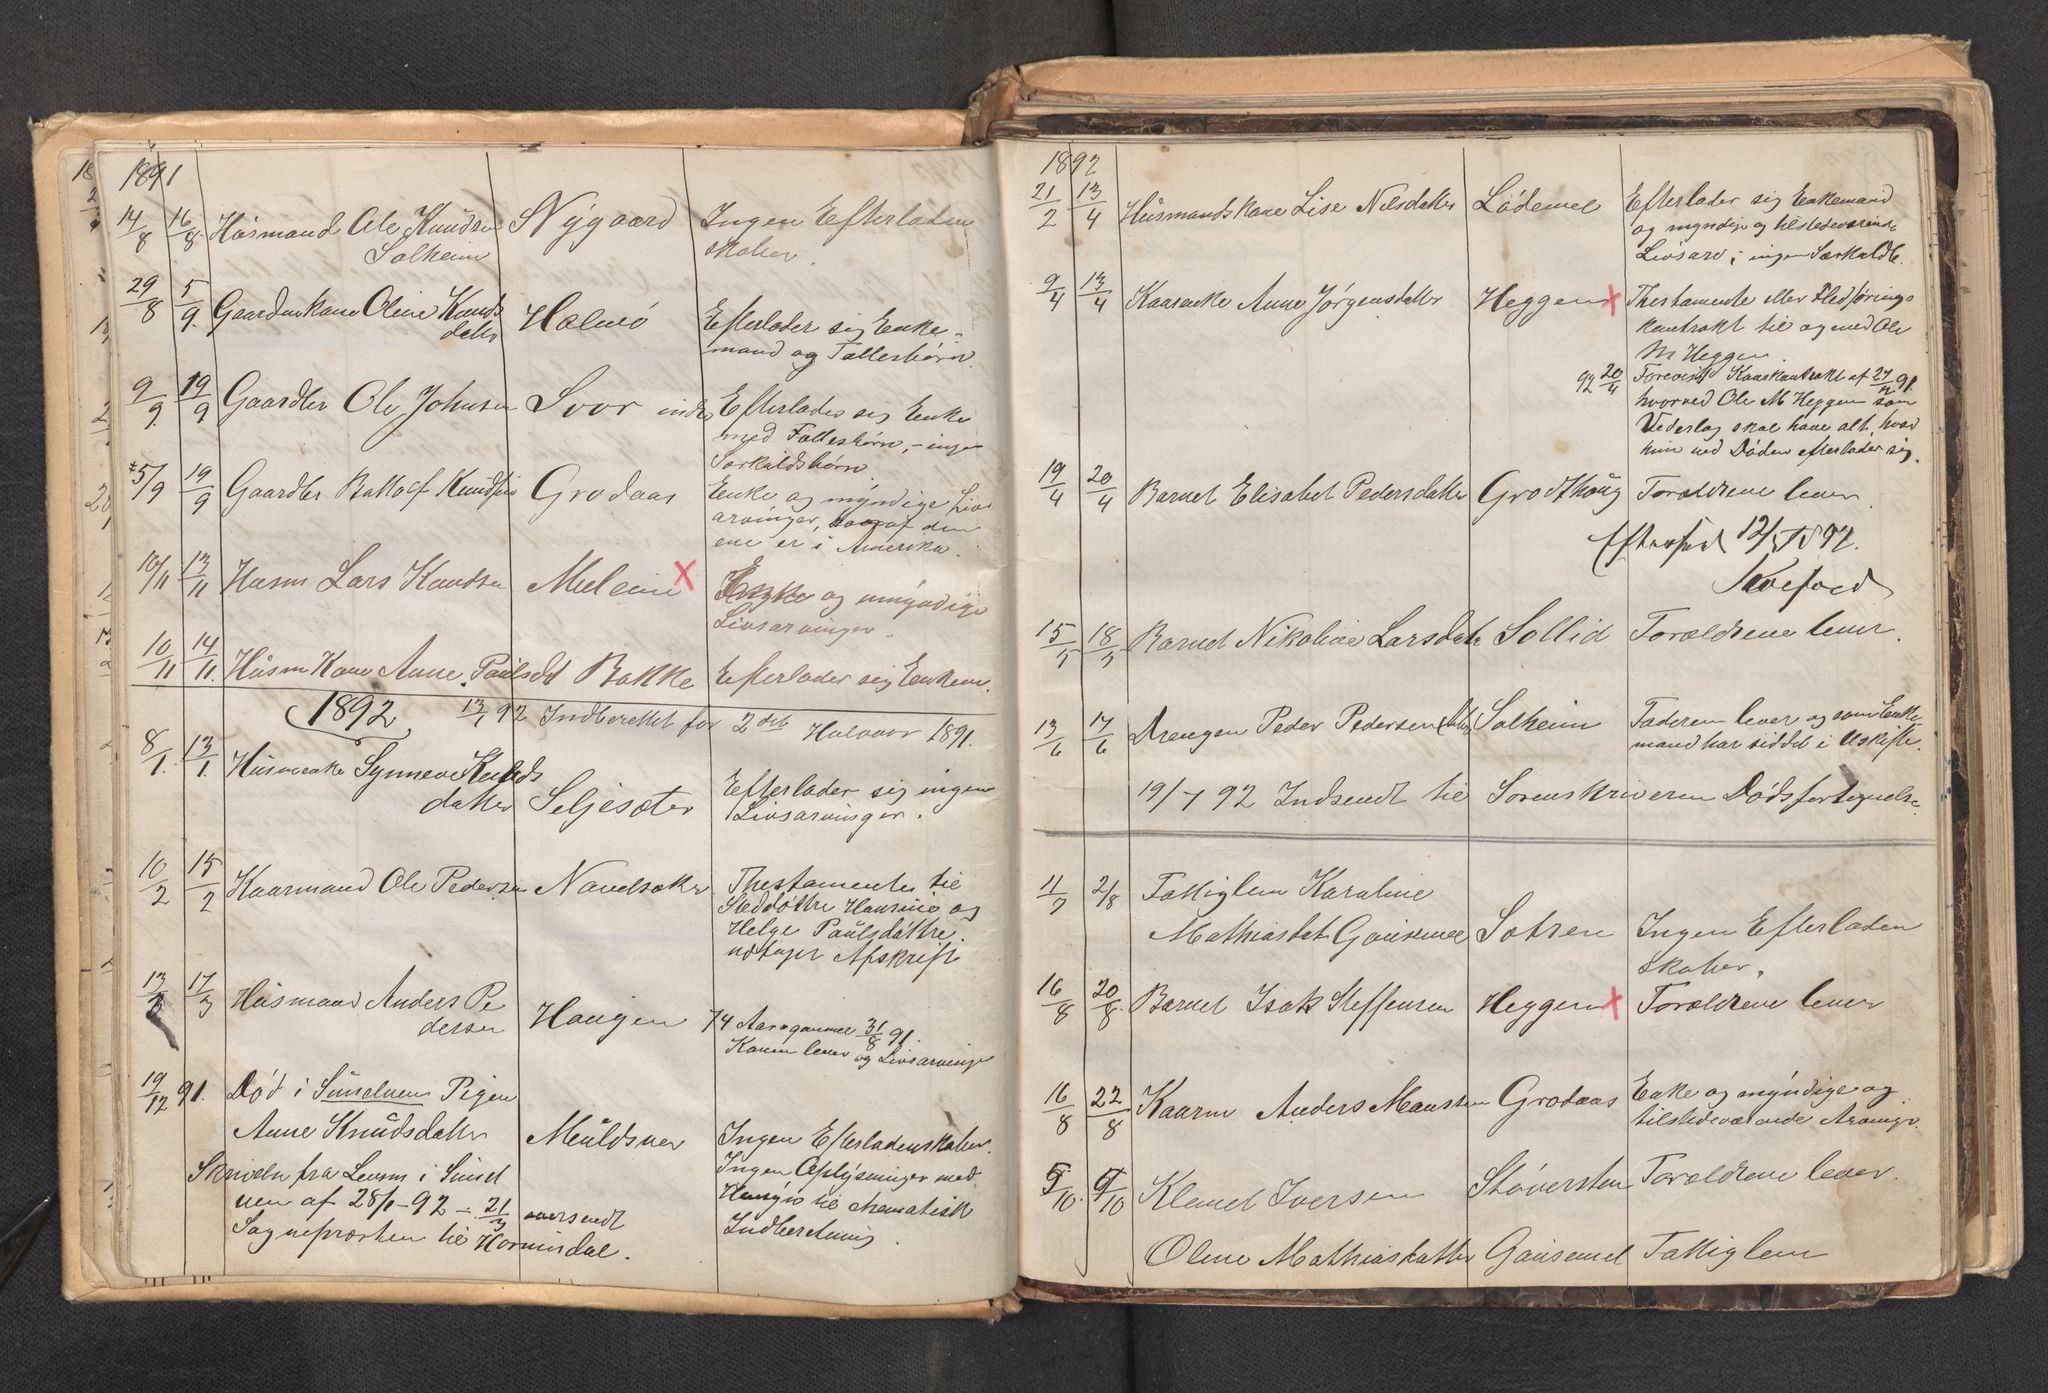 1891
14/8 16/8 Húsmand Ole Knudsen Nygaard Ingen Efterladen
Solheim skaber.
29/8 5/9 Gaardmkane Oline Knuds Holmö Efterlader sig Enke-
datter mand og Fællesbörn.
9/9 19/9 Gaardbr Ole Johnsen Svor indre Efterlader sig Enke
med Fællesbörn, - ingen
Særkuldsbörn
15/9 19/9 Gaardbr Knudsen Grodaas Enke og myndige Livs
arvinger, hvoraf den
ene er i Amerika.
10/11 13/11 Husm Lars Knudsen Muleim x Enke og myndige
Livsarvinger.
10/11 14/11 Húsm Kone Anne Paúlsdt Bakke Efterlader sig Enkem.
1892 13/1 92 Indberettet for 2det Halvaar 1891.
8/1 13/1 Húsmenke Synneve Knuds
datter Seljesæter Efterlader sig ingen
Livsarvinger.
10/2 15/2 Kaarmand Ole Pedersen Navelsaker Thestamenter til
Steddöttre Hansine og
Helge Paúlsdöttre
udtager Afskrift
13/3 17/3 Húsmand Anders Pe
dersen Haugen 74 Aar gammel 31/8 91.
Konen lever og Livsarvinge
19/12 91. Död i Súnelven Pigen
Anne Knúdsdatter Múldsver Ingen Efterladenskaber.
Skriveln fra Lensm i Súnel Ingen Oplysninger med
ven af 28/1-92 - 21/3 oversendt Hensyn til thematisk
Sognepræsten til Hornindal. Indberetning.
1892
21/2 13/4 Húsmandskone Lise Nilsdatter Lödemel Efterlader sig Enkemand
og myndige og tilstedeværende
Livsarv; ingen Særkuldb.
9/4 13/4 Kaarenke Anne Jörgensdatter Heggen x Thestamente eller Fledförings
kontrakt til og med Ole
M Heggen.
92 20/4 Forevist Kaarkontrakt af 91.
hvorved Ole M Heggen som
Vederlag skal have alt, hvad
hun ved Döden efterlader sig.
19/4 20/4 Barnet Elisabet Pedersdatter Grodthoúg Forældrene lever
Efterseet 12/5 1892.
Koefoed
15/5 18/5 Barnet Nikoline Larsdatter Sollid Forældrene lever.
13/6 17/6 Drengen Peder Pedersen Solheim Faderen lever og som Enke-
mand har siddet i Uskifte.
19/7 92 Indsendt til Sorenskriveren Dödsfortegnelse
11/7 2/8 Fattiglem Karoline
Mathiasdat Gausemel Sætren Ingen Efterladen
skaber.
16/8 20/8 Barnet Isak Steffensen Heggen x Forældrene lever
16/8 22/8 Kaarm Anders Monsen Grodaas Enke og myndige og
tilstedeværende Arvinge.
5/10 9/10 Klemet Iversen Stöversten Forældrene lever.
Oline Mathiasdatter Gausemel Fattiglem